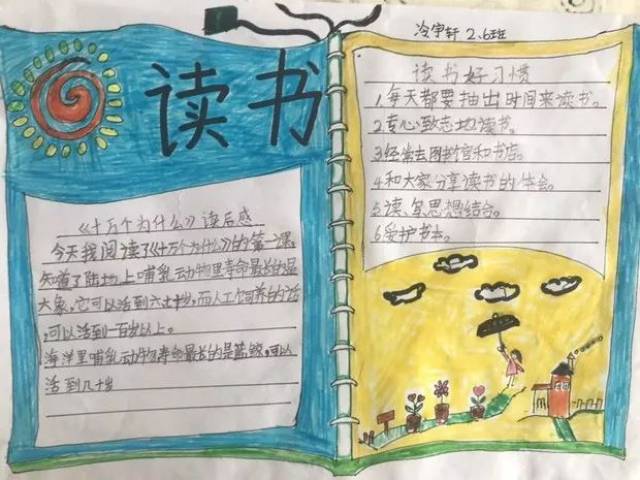 读书
《十万个为什么》读后感
今天我阅读了《十万个为什么》的第一课,
知道了陆地上哺乳动物里寿命最长的是
大象,它可以活到六七十岁,而人工饲养的话
,可以活到一百岁以上。
海洋里哺乳动物寿命最长的是蓝鲸,可以
活到几十岁
冷宇轩 2.6班
读书好习惯
1.每天都要抽出时间来读书。
2.专心致志地读书。
3.经常去图书馆和书店。
4.和大家分享读书的体会。
5.读、写、思想结合。
6.爱护书本。